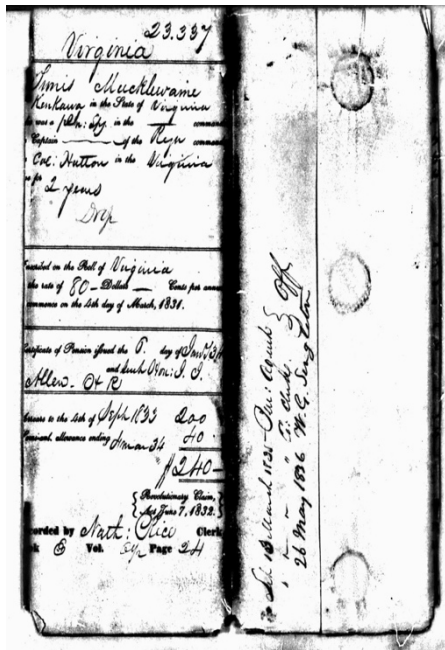 23.337
Virginia
Tunis Mucklewaine
Kenhawa in the State of Virginia
was a in the command
Captain of the Regt command
Col: Hutton in the Virginia
for 2 years
Inscribed on the Roll of Virginia
the rate of 80 - Dollars — Cents per annum
commence on the 4th day of March, 1831.
Certificate of Pension issued the 6. day of Jany 34
and
Allen. H R
Arrears to the 4th of Sept 1833 200
allowance ending 4 Mar 34 40
$240-
Revolutionary Claim,
Act June 7, 1832.
Recorded by Nath: Rice Clerk
Book E Vol. Page 24
13 March 1835
26 May 1836 W. G. Singleton